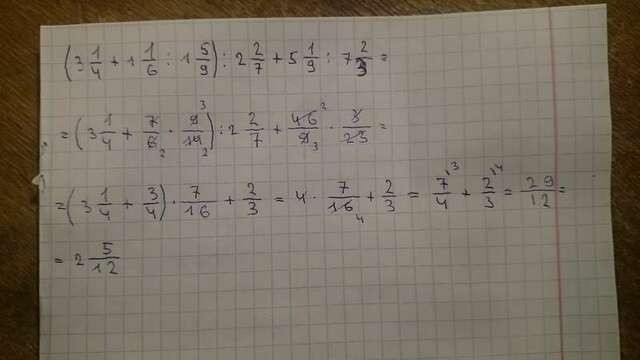 (3 1/4 + 1 1/6 : 1 5/9) : 2 2/7 + 5 1/9 : 7 2/3 =
= (3 1/4 + 7/6 2 · 9 3/14 2) : 2 2/7 + 46 2/9 3 · 3/23 =
= (3 1/4 + 3/4) · 7/16 + 2/3 = 4 · 7/16 4 + 2/3 = 7 3/4 + 2 4/3 = 29/12 =
= 2 5/12